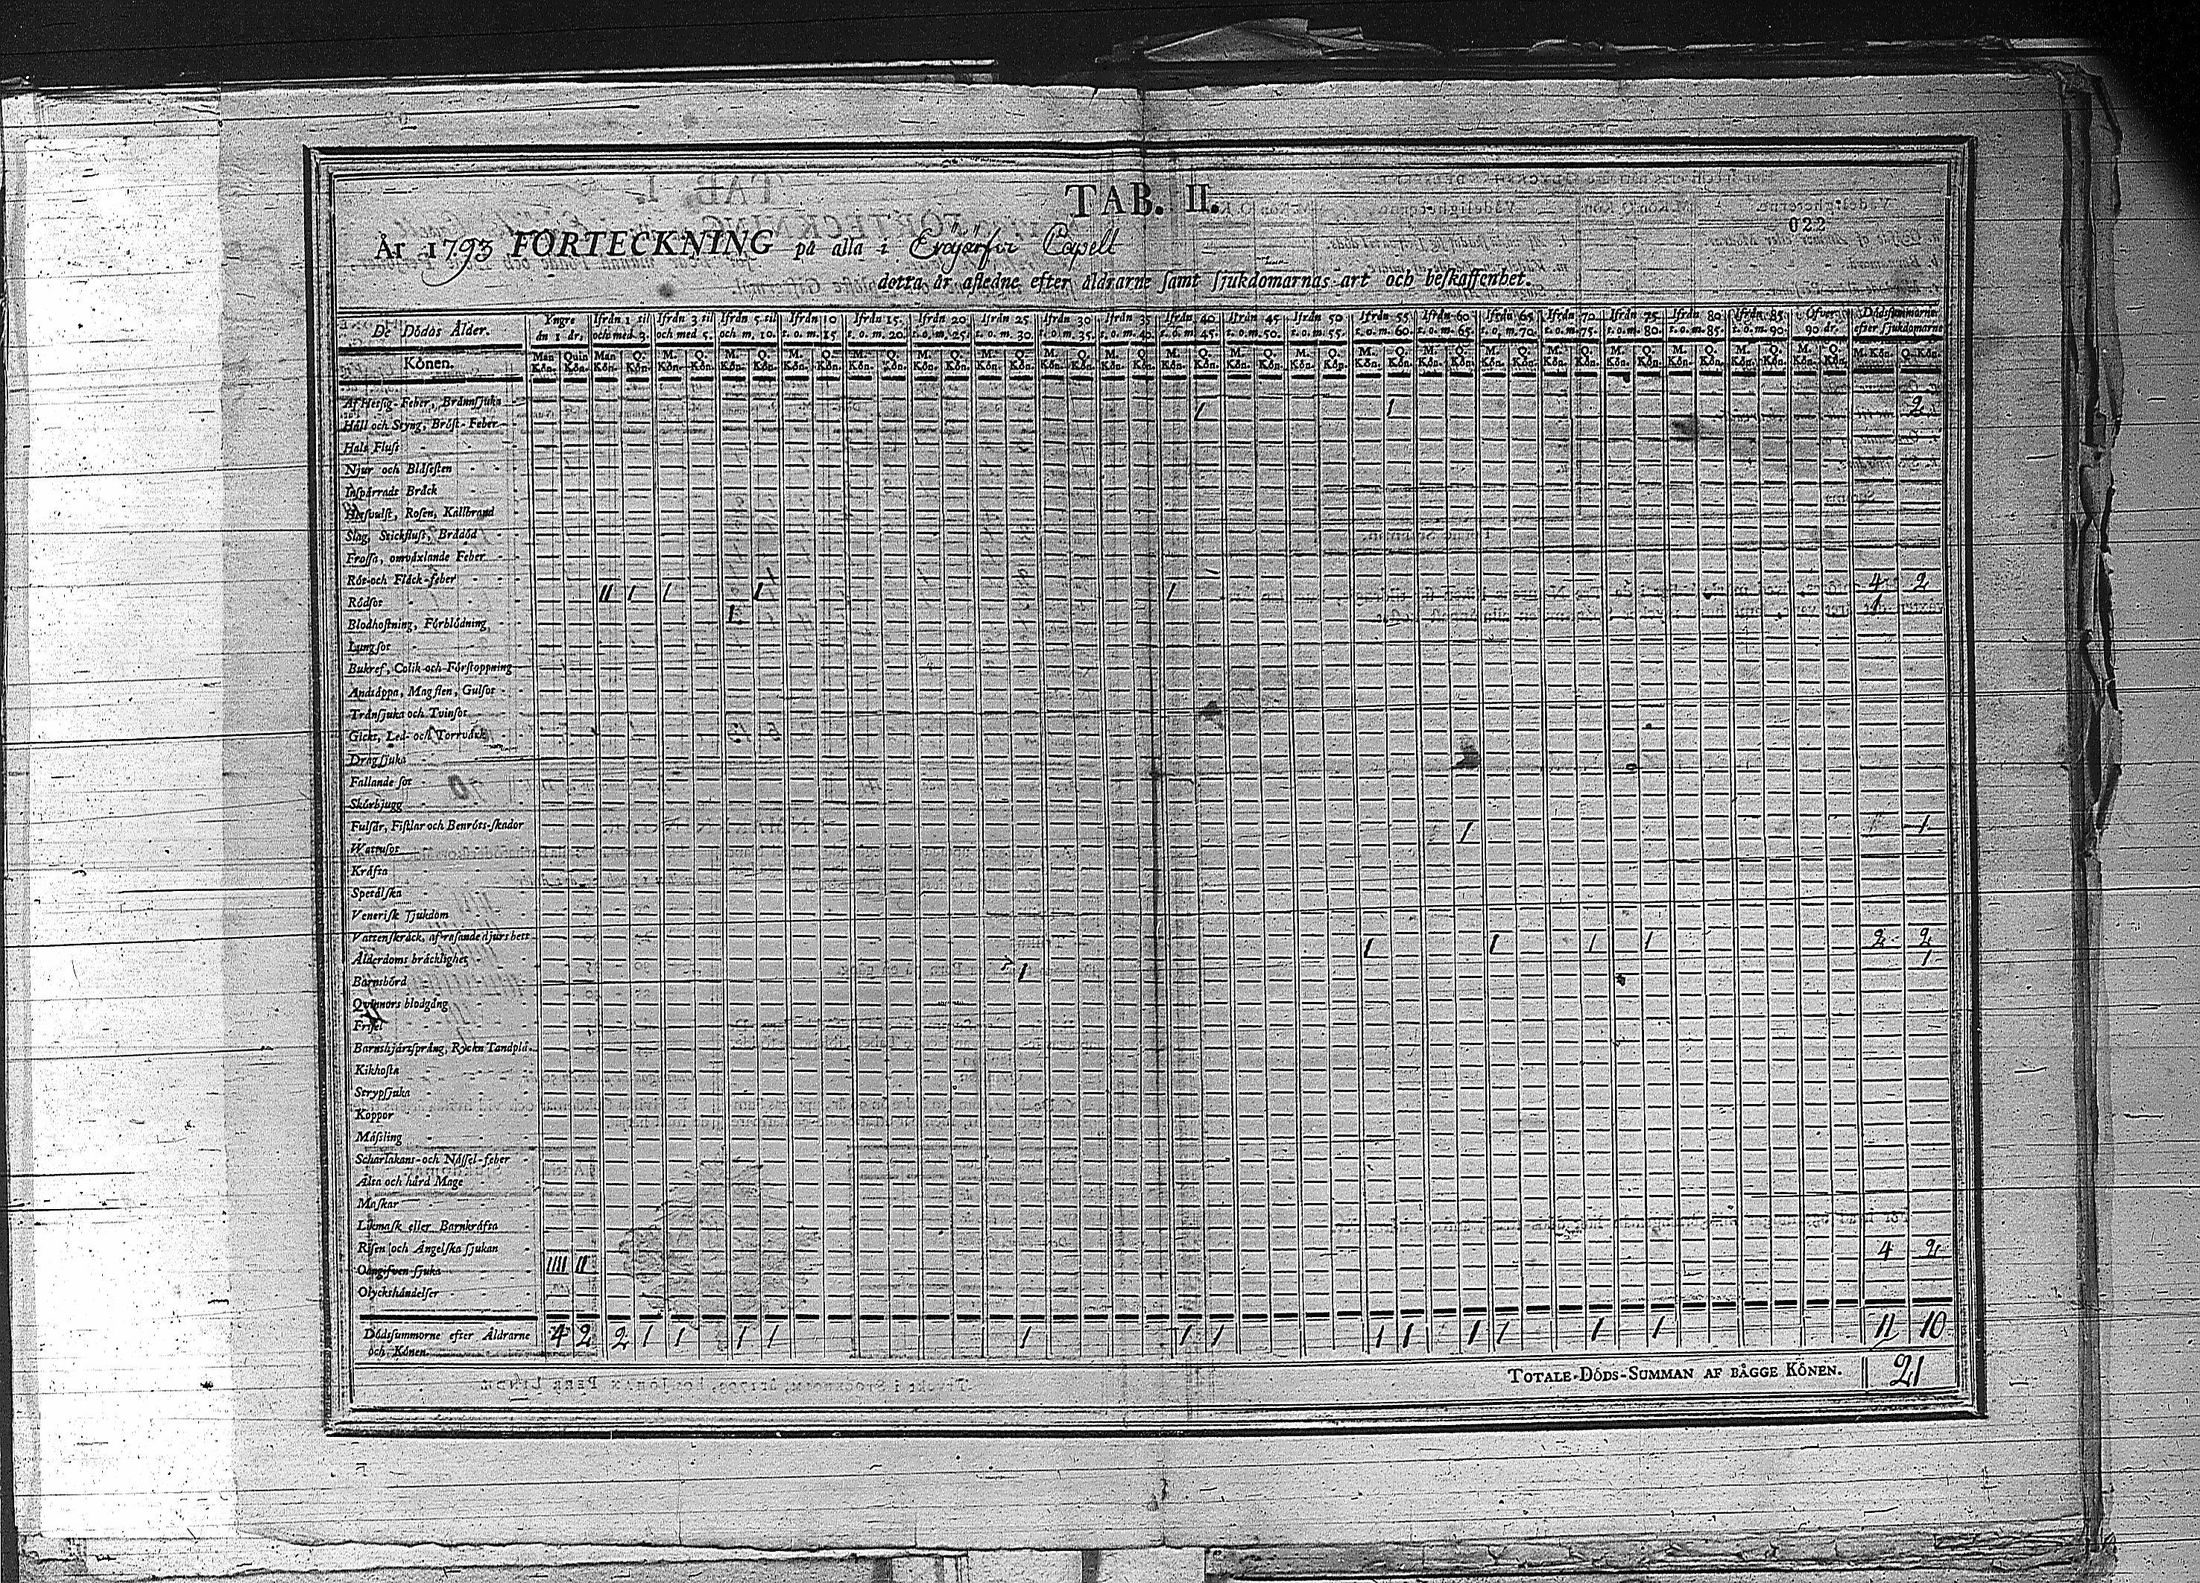 TAB. II.
022
År 1793 FÖRTECKNING på alla i Eräjärfvi Capell
detta år afledne efter åldrarne samt sjukdomarnas art och beskaffenhet.
De Dödas Ålder. Yngre än 1 år, Ifrån 1 til och med 3. Ifrån 3 til och med 5. Ifrån 5 til och m. 10. Ifrån 10 t. o. m. 15 Ifrån 15 t. o. m. 20. Ifrån 20 t. o. m. 25. Ifrån 25 t. o. m. 30. Ifrån 30 t. o. m. 35. Ifrån 35 t. o. m. 40. Ifrån 40 t. o. m. 45. Ifrån 45 t. o. m. 50. Ifrån 50 t. o. m. 55. Ifrån 55 t. o. m. 60. Ifrån 60 t. o. m. 65. Ifrån 65 t. o. m. 70. Ifrån 70 t. o. m. 75. Ifrån 75 t. o. m. 80. Ifrån 80 t. o. m. 85. Ifrån 85 t. o. m. 90. Öfver 90 år. Dödssummorne efter sjukdomarne
Könen. Man Kön. Quin Kön. Man Kön. Q. Kön. M. Kön. Q. Kön. M. Kön. Q. Kön. M. Kön. Q. Kön. M. Kön. Q. Kön. M. Kön. Q. Kön. M. Kön. Q. Kön. M. Kön. Q. Kön. M. Kön. Q. Kön. M. Kön. Q. Kön. M. Kön. Q. Kön. M. Kön. Q. Kön. M. Kön. Q. Kön. M. Kön. Q. Kön. M. Kön. Q. Kön. M. Kön. Q. Kön. M. Kön. Q. Kön. M. Kön. Q. Kön. M. Kön. Q. Kön. M. Kön. Q. Kön. M. Kön. Q. Kön.
Af Hetsig-Feber, Brännsjuka 1 1 2
Håll och Styng, Bröst-Feber
Hals Fluss
Njur och Blåsesten
Inspärrade Bräck
Hetsvulst, Rosen, Kallbrand
Slag, Stickfluss, Brådöd
Frossa, omväxlande Feber
Röt-och Fläck-feber
Rödsot II 1 1 1 1 4 2
Blodhostning, Förblödning 1 1
Lungsot
Bukref, Colik och Förstoppning
Andtäppa, Magsten, Gulsot
Trånsjuka och Tvinsot
Gickt, Led- och Torrvärk
Dragsjuka
Fallande sot
Skörbjugg
Fulsår, Fistlar och Benröts-skador
Wattusot 1 1
Kräfta
Spetälska
Venerisk Sjukdom
Vattenskräck, af rasande djurs bett
Ålderdoms bräcklighet 1 1 1 1 2 2
Barnsbörd 1 1
Qvinnors blodgång
Frisel
Barnshjärtsprång, Ryck Tandplå.
Kikhosta
Strypsjuka
Koppor
Mässling
Scharlakans-och Nässel-feber
Älta och hård Mage
Maskar
Likmask eller Barnkräfta
Risen och Ängelska sjukan
Oangifven sjuka IIII II 4 2
Olyckshändelser
Dödssummorne efter Åldrarne 4 2 2 1 1 1 1 1 1 1 1 1 1 1 1 1 11 10
och Könen.
TOTALE-DÖDS-SUMMAN AF BÅGGE KÖNEN. 21